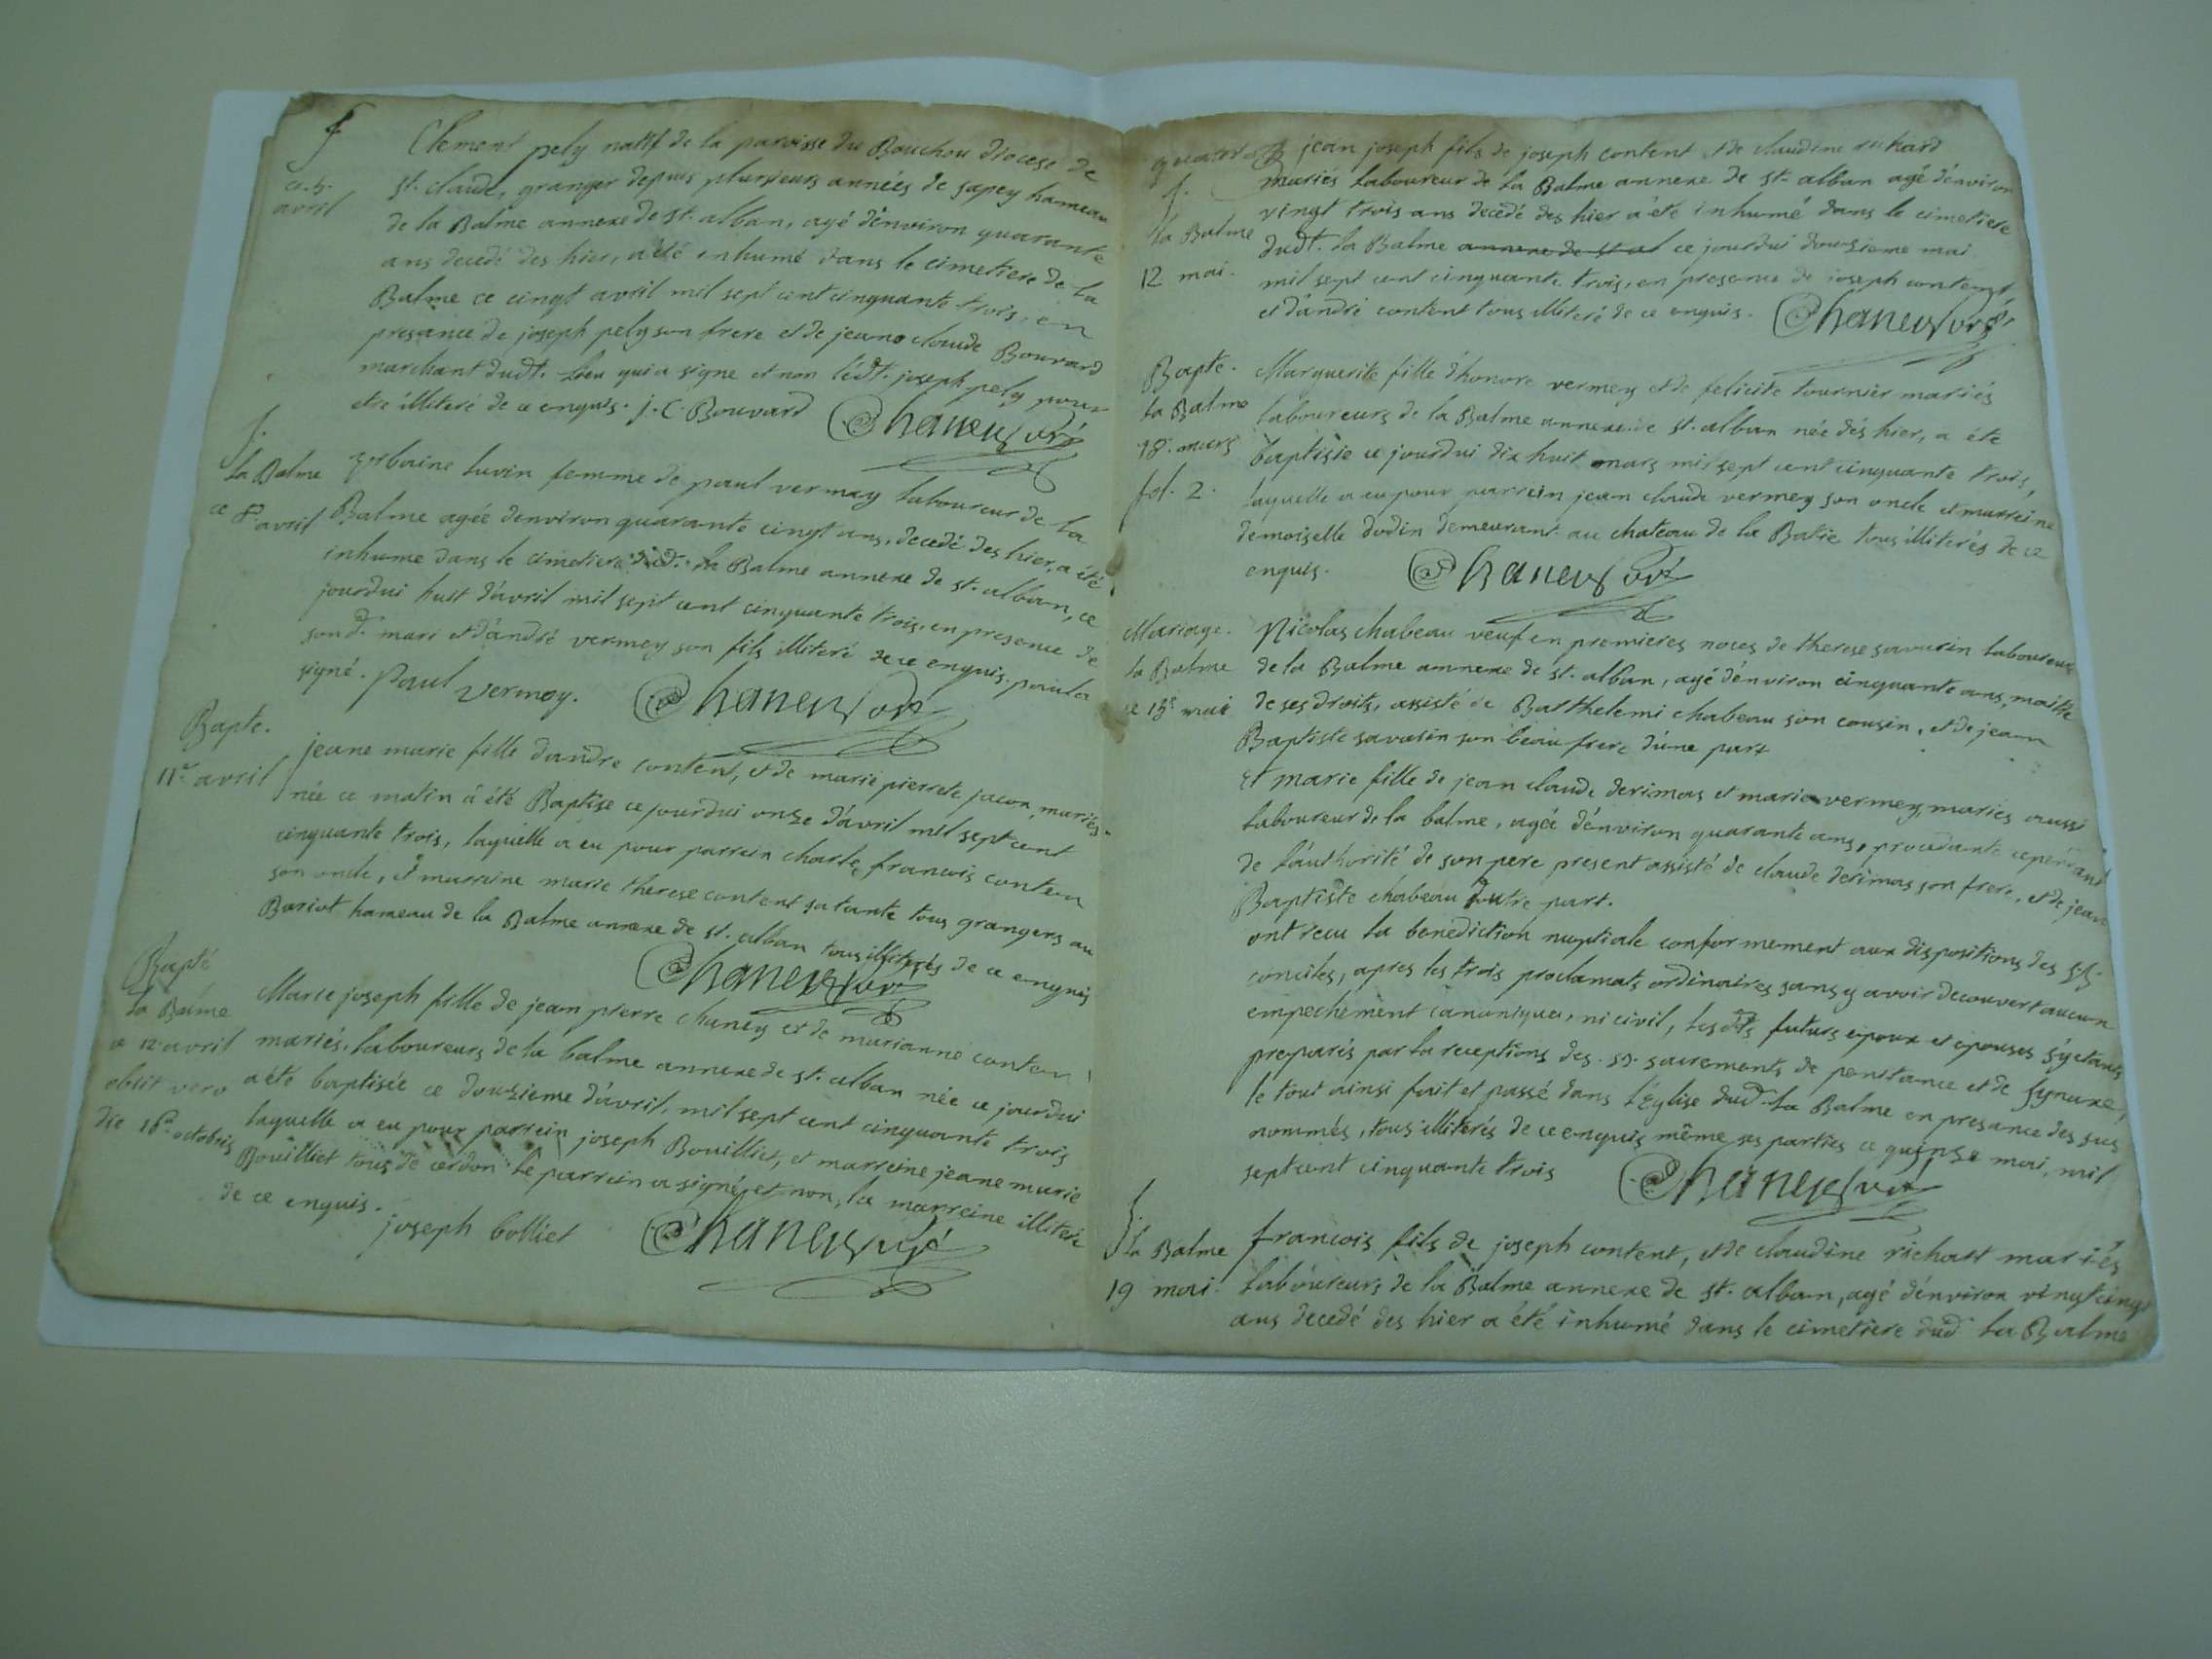 f
ce 5.
avril
Clement pely natif de la paroisse du Bouchou diocese de
st. claude, granger depuis plursieurs années de sapey hameau
de la Balme annexe de st. alban, agé d'environ quarante
ans decedé des hier, a été inhumé dans le cimetiere de la
Balme ce cinqt avril mil sept cent cinquante trois, en
presance de joseph pely son frere et de jeane claude Bouvard
marchant dudt. lieu qui a signe et non lédt. joseph pely pour
etre illiteré de ce enquis. j. C. Bouvard Chaney curé
f.
la Balme
ce 8e avril
urbaine luvin femme de paul vermey laboureur de la
Balme agée denviron quarante cinqt ans, decedé des hier, a été
inhume dans le cimetiere dud. la Balme annexe de st. alban, ce
jourdui huit d'avril mil sept cent cinquante trois, en presence de
sond. mari et d'andré vermey son fils illiteré de ce enquis. paul a
signé. Paul vermey. Chaney curé
Bapte.
11e avril
jeane marie fille dandre content, et de marie pierrete jacon, mariés
née ce matin á été Baptise ce jourdui onze d'avril mil sept cent
cinquante trois, laquelle a eu pour parrein charle francois conten
son oncle, et marreine marie therese content sa tante tous grangers au
Bariot hameau de la Balme annexe de st. alban tous illiterés de ce enquis
Chaney curé
Bapté
la Balme
ce 12 avril
obiit vero
die 16a octobris
Marie joseph fille de jean pierre chaney et de marianne conten
mariés, laboureurs de la balme annexe de st. alban née ce jourdui
a été baptisée ce douzieme d'avril, mil sept cent cinquante trois
laquelle a eu pour parrein joseph Bouilliet, et marreine jeane marie
Bouilliet tous de cerdon le parrein a signé, et non, la marreine illiteré
de ce enquis.
joseph bolliet Chaney curé
f.
la Balme
12 mai.
jean joseph fils de joseph content et de claudine richard
mariés laboureur de la Balme annexe de st. alban agé d'environ
vingt trois ans decedé des hier a été inhumé dans le cimetiere
dudt. la Balme annexe de st al ce jourdui douzieme mai
mil sept cent cinquante trois, en presence de joseph content
et d'andré content tous illiteré de ce enquis. Chaney curé
Bapte.
la Balme
18. mars
fol. 2.
Marguerite fille d'honore vermey et de felicite tournier mariés
laboureurs de la Balme annexe de st. alban née dés hier, a été
baptisée ce jourdui dix huit mars mil sept cent cinquante trois,
laquelle a eu pour parrein jean claude vermey son oncle et marreine
demoiselle dudin demeurant au chateau de la Batie tous illiterés de ce
enquis. Chaney curé
Mariage.
la Balme
ce 15e mai
Nicolas chabeau veuf en premieres noces de therese savarin laboureur
de la Balme annexe de st. alban, agé d'environ cinquante ans, maître
de ses droits, assisté de Barthelemi chabeau son cousin, et de jean
Baptiste savarin son beau frere d'une part
Et marie fille de jean claude derimas et marie vermey, mariés aussi
laboureur de la balme, agée d'environ quarante ans, procedante cependant
de l'authorité de son pere present assisté de claude derimas son frere, et de jean
Baptiste chabeau d'autre part.
ont recu la benediction nuptiale conformement aux dispositions des sts.
conciles, apres les trois proclamats ordinaires sans y avoir decouvert aucun
empechement canonique, ni civil, les dts futurs epoux et epouses s'y etants
preparés par la receptions des ss. sacrements de penitance et de synaxe,
le tout ainsi fait et passé dans l'Eglise dud. la Balme en presance des sus
nommés, tous illiterés de ce enquis même les parties ce quinze mai, mil
sept cent cinquante trois Chaney curé
f.
la Balme
19 mai.
francois fils de joseph content, et de claudine richart mariés
laboureurs de la Balme annexe de st. alban, agé d'environ vingt cinqt
ans decedé des hier a été inhumé dans le cimetiere dud. la Balme